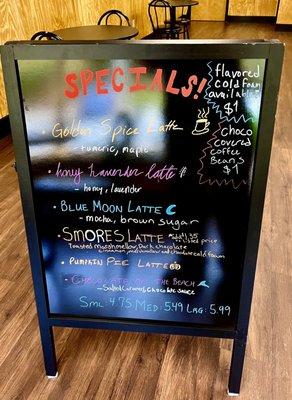 SPECIALS!
flavored
cold foam
available!
$1
choco
covered
coffee
Beans
$1
• Golden Spice Latte
- tumeric, maple
• Hony Lavender latte
- honey, lavender
• BLUE MOON LATTE
- mocha, brown sugar
• SMORES LATTE
listed price
Toasted marshmallow, Dark chocolate
cinnamon, marshmallow and chocolate cold foam
• PUMPKIN PIE LATTE
• CHOCOLATE THE BEACH
- Salted Caramel, Chocolate sauce
SML: 4.75 MED: 5.49 LRG: 5.99